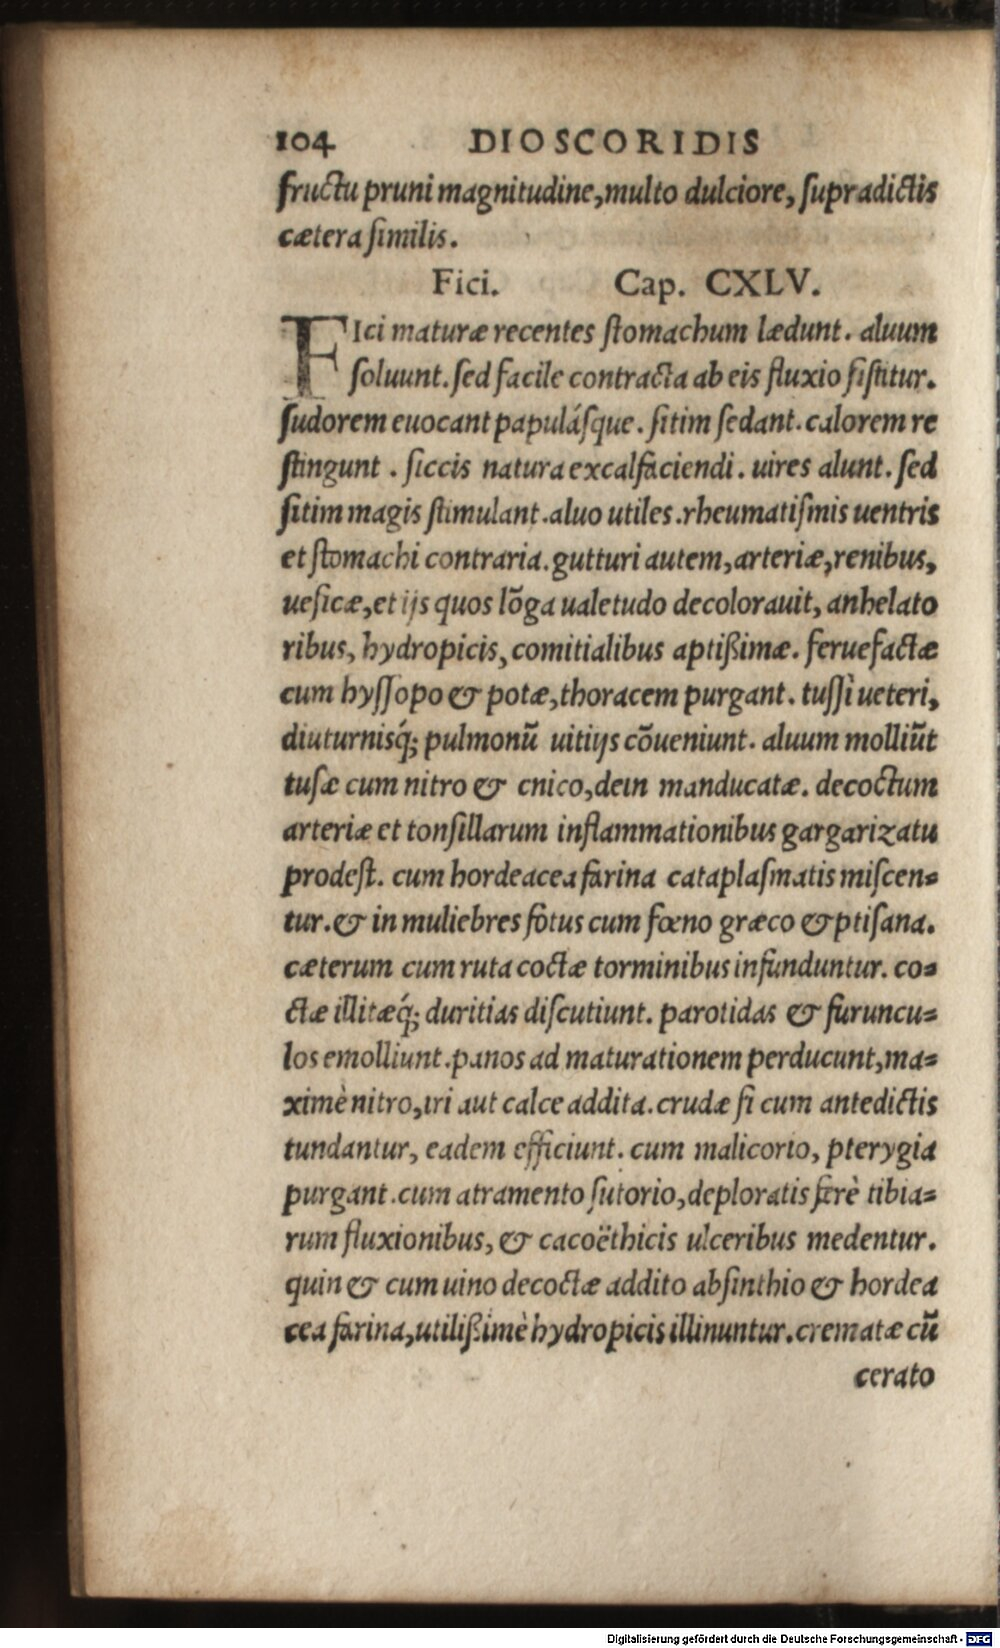 104 DIOSCORIDIS
fructu pruni magnitudine, multo dulciore, ſupradictis
cætera ſimilis.
Fici. Cap. CXLV.
FIci maturæ recentes ſtomachum lædunt. aluum
ſoluunt. ſed facile contracta ab eis fluxio ſiſtitur.
ſudorem euocant papuláſque. ſitim ſedant. calorem re
ſtingunt. ſiccis natura excalfaciendi. uires alunt. ſed
ſitim magis ſtimulant. aluo utiles. rheumatiſmis uentris
et ſtomachi contraria. gutturi autem, arteriæ, renibus,
ueſicæ, et ijs quos lõga ualetudo decolorauit, anhelato
ribus, hydropicis, comitialibus aptißimæ. feruefactæ
cum hyſſopo & potæ, thoracem purgant. tuſſì ueteri,
diuturnisq́; pulmonũ uitijs cõueniunt. aluum molliũt
tuſæ cum nitro & cnico, dein manducatæ. decoctum
arteriæ et tonſillarum inflammationibus gargarizatu
prodeſt. cum hordeacea farina cataplaſmatis miſcen=
tur. & in muliebres fôtus cum fœno græco & ptiſana.
cæterum cum ruta coctæ torminibus infunduntur. co=
ctæ illitæq́; duritias diſcutiunt. parotidas & furuncu=
los emolliunt. panos ad maturationem perducunt, ma=
ximè nitro, iri aut calce addita. crudæ ſi cum antedictis
tundantur, eadem efficiunt. cum malicorio, pterygia
purgant. cum atramento ſutorio, deploratis ferè tibia=
rum fluxionibus, & cacoëthicis ulceribus medentur.
quin & cum uino decoctæ addito abſinthio & hordea
cea farina, utilißimè hydropicis illinuntur. crematæ cũ
cerato
Digitalisierung gefördert durch die Deutsche Forschungsgemeinschaft - DFG